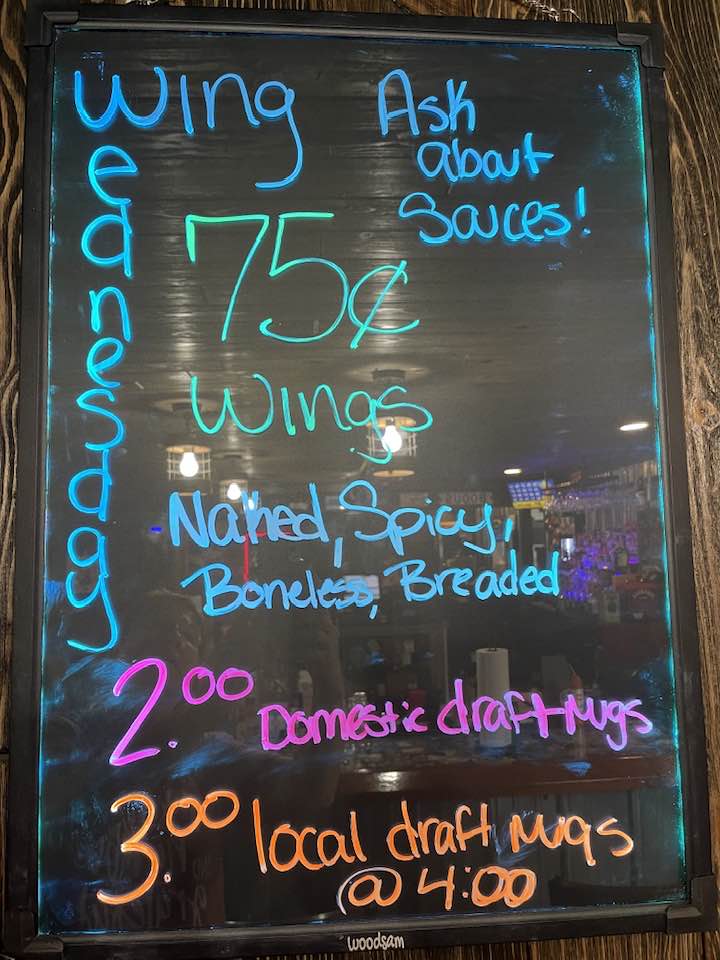 Wing
Wednesday
Ask
about
Sauces!
75¢
Wings
Naked, Spicy,
Boneless, Breaded
2.00 Domestic draft Mugs
3.00 local draft mugs
@ 4:00
woodsam